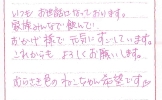 いつも お世話になっております。
家族みんなで飲んで
おかげ様で 元気にすごしています。
これからも よろしくお願いします。
むらさき色のねこちゃん希望です